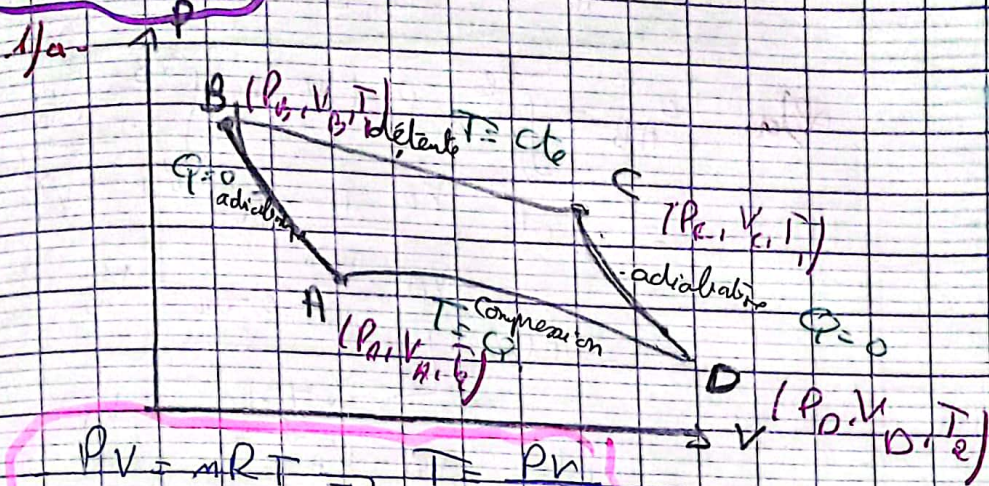 1/a-
P
B (P_B, V_B, T_1)
détente T = cte
Q=0
adiabatique
C
(P_C, V_C, T_1)
adiabatique
Q=0
A
T = C
Compression
(P_A, V_A, T_2)
D
(P_D, V_D, T_2)
V
PV = nRT T = PV